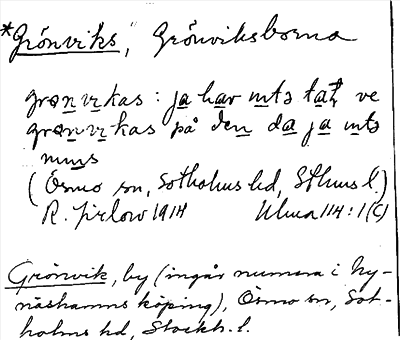 *Grönviks", Grönviksborna
grönvikas: ja har inte tat ve
grönvikas på den da ja inte
mins
(Ösmo sn, Sotholms hd, Sthms l.)
R. Jirlow 1914 Ulma 114:1(C)
Grönvik, by (ingår numera i Ny-
näshamns köping), Ösmo sn, Sot-
holms hd, Stockh. l.